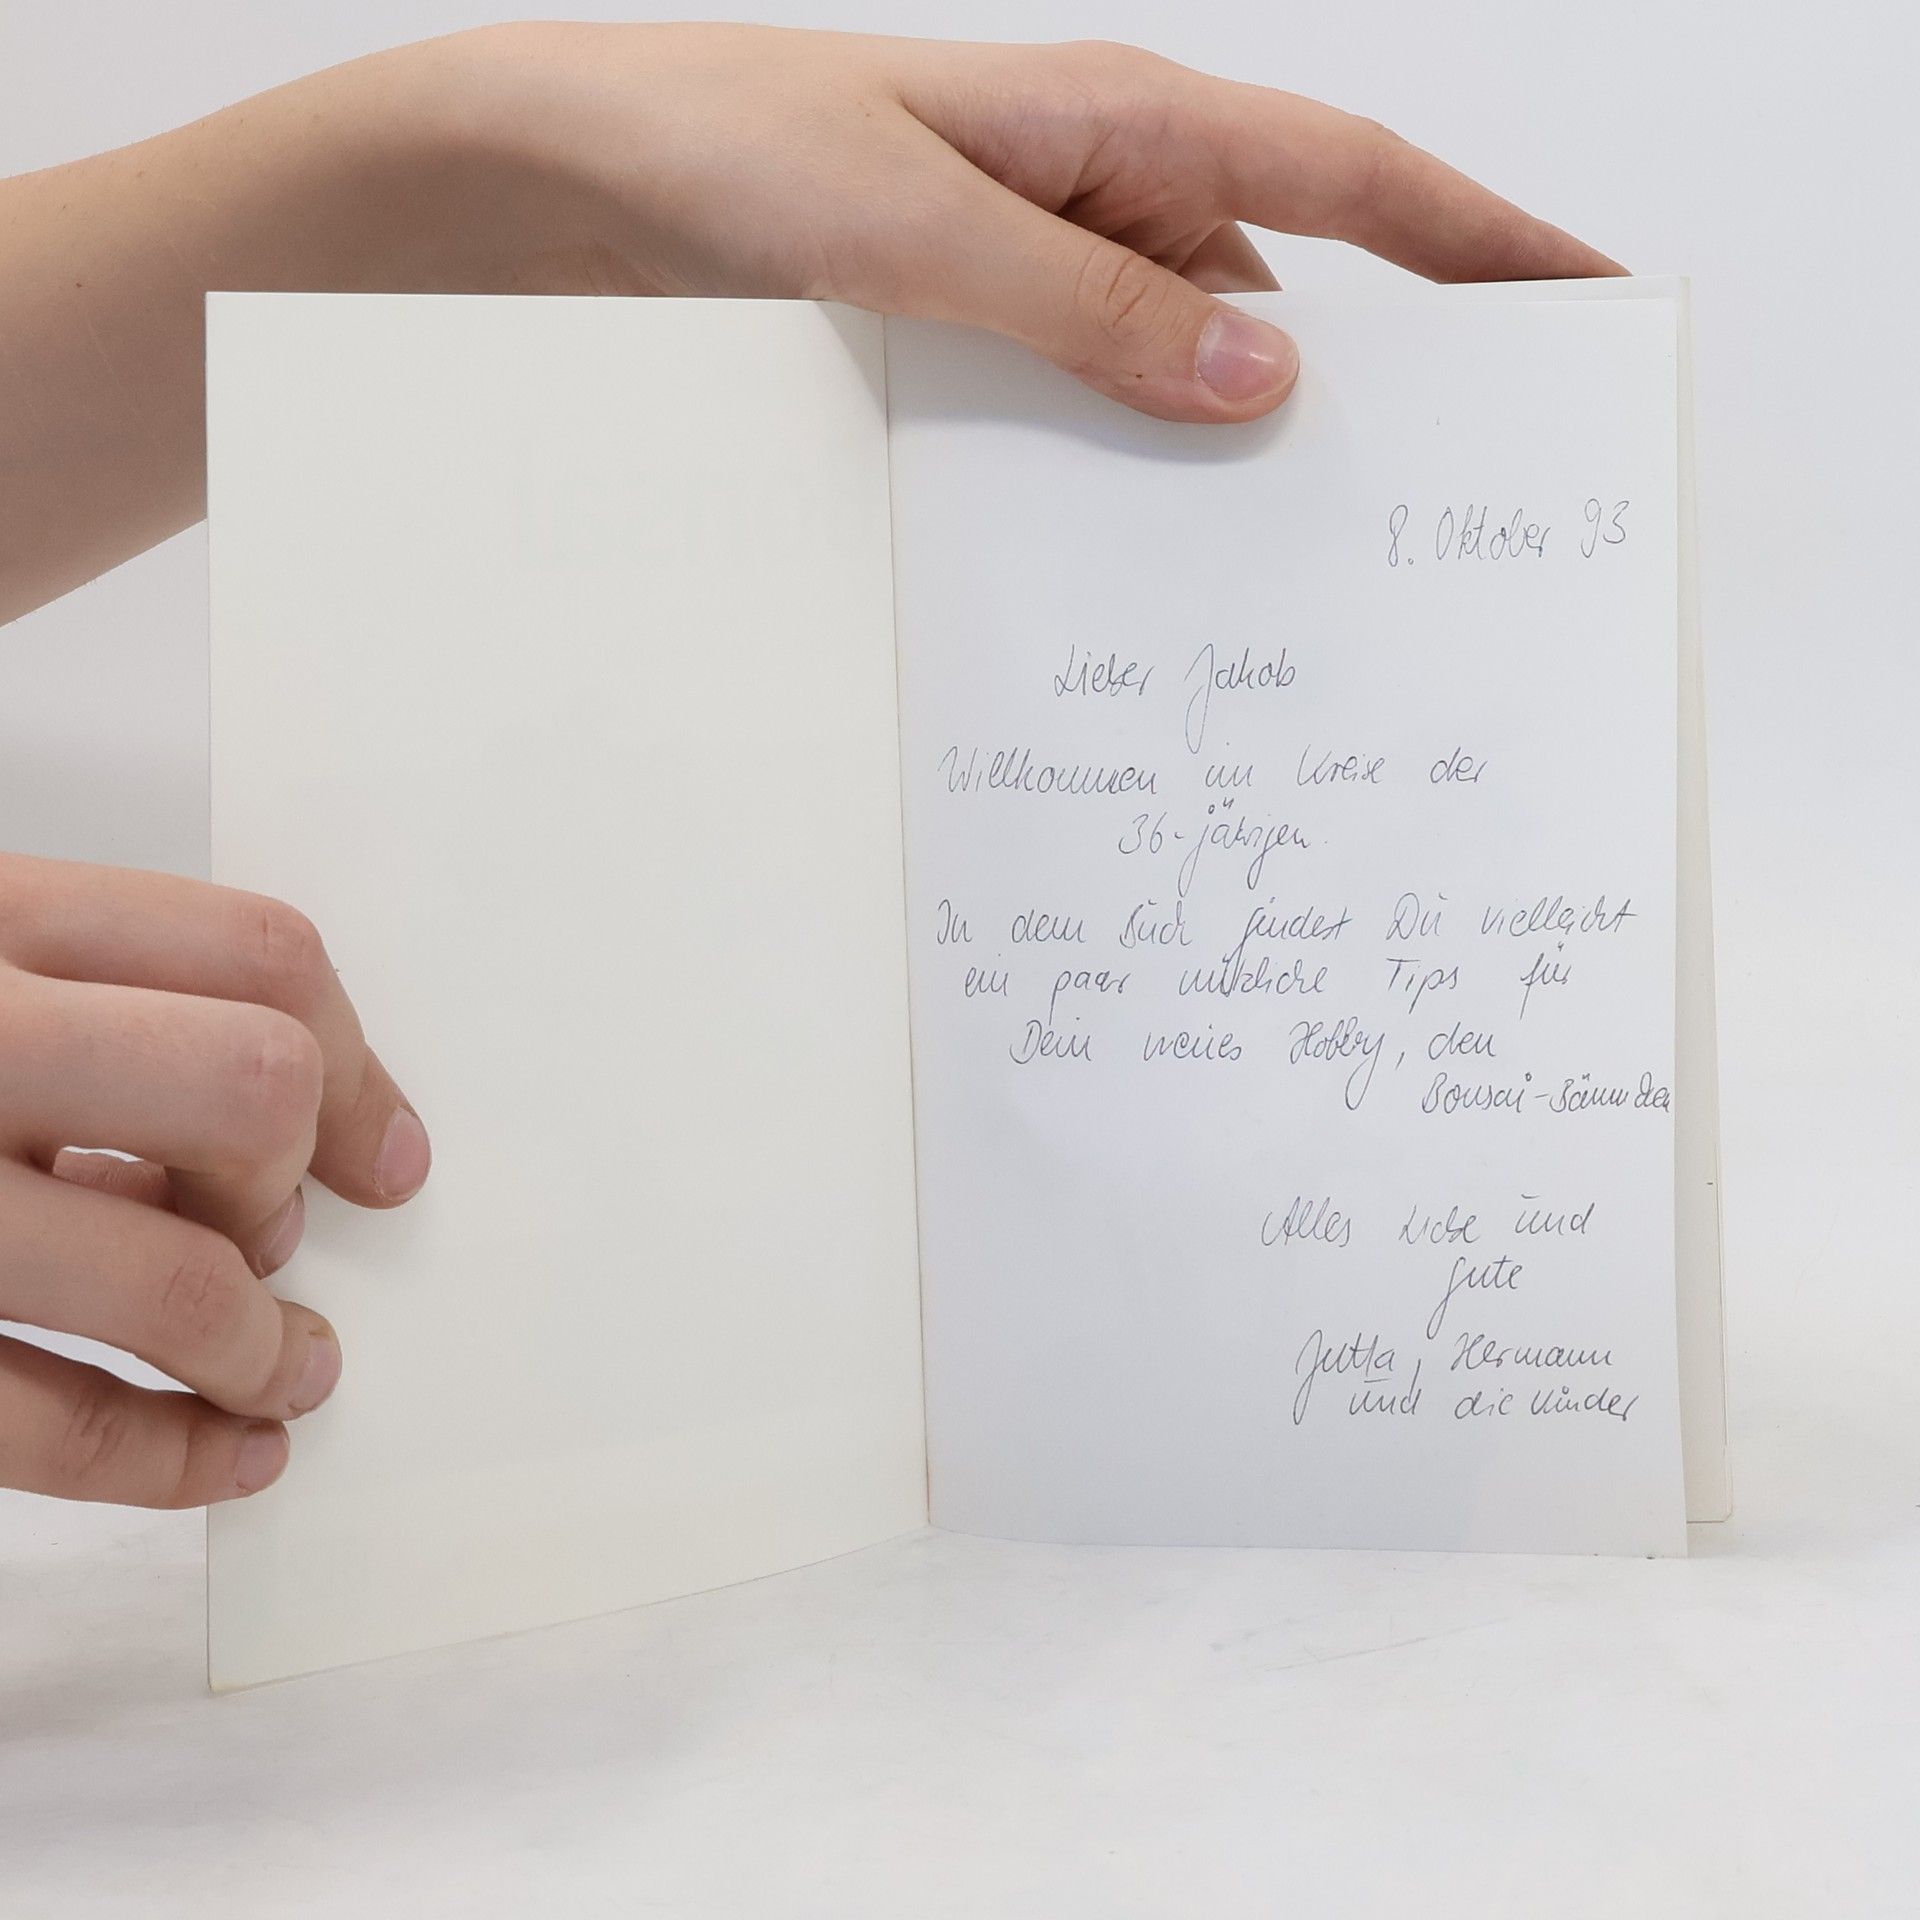 8. Oktober 93
Lieber Jakob
Willkommen im Kreise der
36-jährigen.
In dem Buch findest Du vielleicht
ein paar nützliche Tips für
Dein neues Hobby, den
Bonsai-Bäumchen
Alles Liebe und
Gute
Jutta, Hermann
und die Kinder